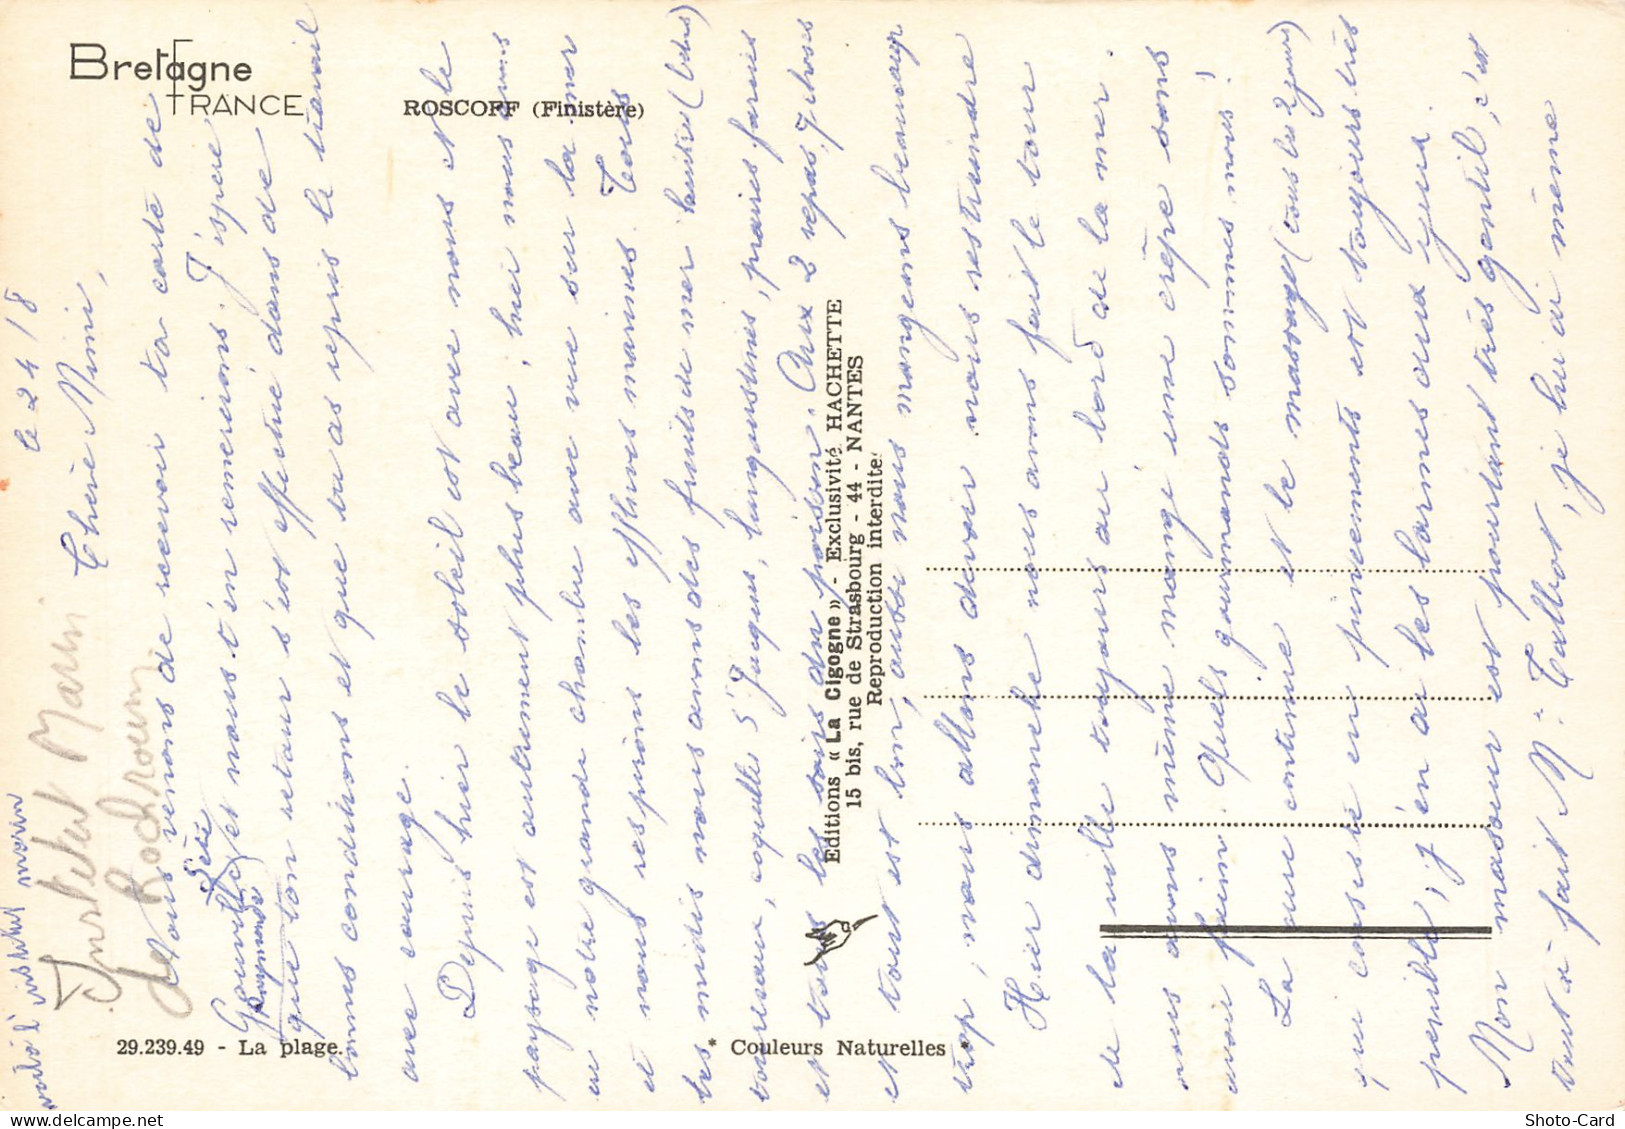 Bretagne
FRANCE
ROSCOFF (Finistère)
voilà l'institut marin
Institut Marin
de Rockroum
le 24/8
Chère Mimi,
Nous venons de recevoir ta carte de
Gourette et nous t'en remercions. J'espère
que ton retour s'est effectué dans de
bonnes conditions et que tu as repris le travail
avec courage.
Depuis hier le soleil est avec nous et le
paysage est autrement plus beau, hier nous avons
eu notre grande chambre avec vue sur la mer
et nous respirons les effluves marines. Tous
les midis nous avons des fruits de mer huitres (les)
tourteaux, coquilles St Jacques, langoustines, praires farcies
et tous les soirs du poisson. Aux 2 repas, 7 choses
et tout est bon, aussi nous mangeons beaucoup
trop, nous allons devoir nous restreindre
Hier dimanche nous avons fait le tour
de la ville toujours au bord de la mer.
nous avons même mangé une crêpe sans
avoir faim. Quels gourmands sommes nous!
La cure continue et le massage (tous les 2 jours)
qui consiste en pincements est toujours très
pénible, j'en ai les larmes aux yeux.
Mon masseur est pourtant très gentil, c'est
tout à fait Mr Talbot, je lui ai même
Editions « La Cigogne » - Exclusivité HACHETTE
15 bis, rue de Strasbourg - 44 - NANTES
Reproduction interdite
29.239.49 - La plage.
* Couleurs Naturelles *
Shoto-Card